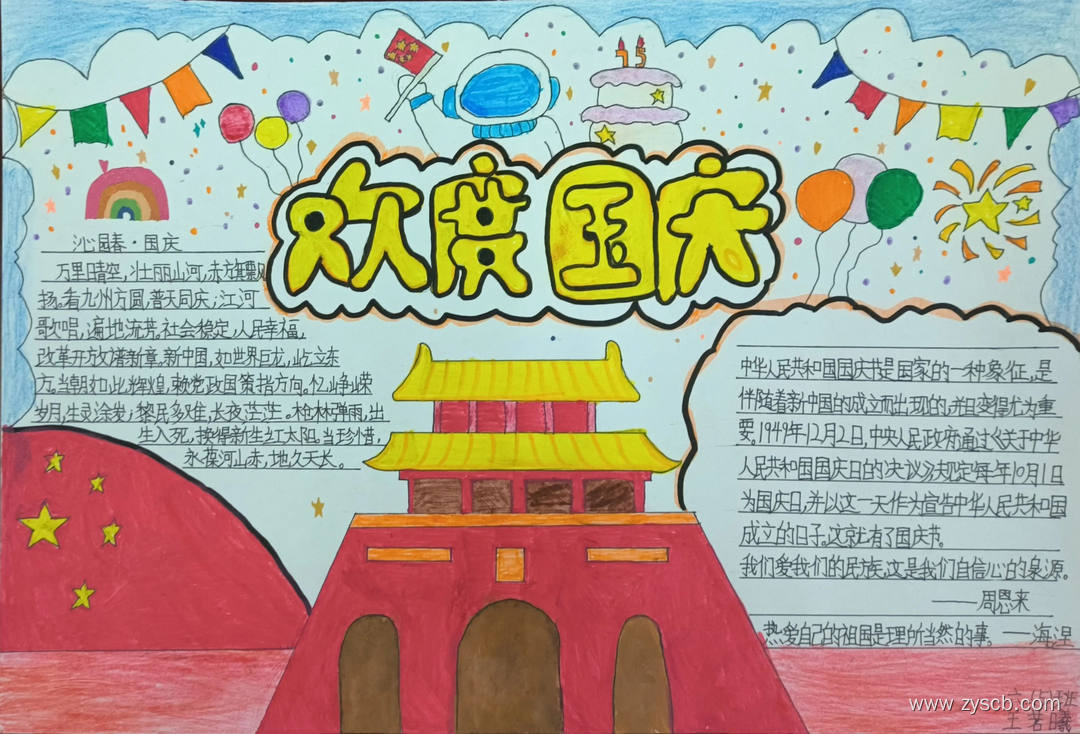 75
欢度国庆
沁园春·国庆
万里晴空,壮丽山河,赤旗飘
扬。看九州方圆,普天同庆;江河
歌唱,遍地流芳。社会稳定,人民幸福,
改革开放谱新章。新中国,如世界巨龙,屹立东
方。当朝如此辉煌,赖党政国策指方向。忆峥嵘
岁月,生灵涂炭,黎民多难,长夜茫茫。枪林弹雨,出
生入死,换得新生红太阳。当珍惜,
永葆河山赤,地久天长。
中华人民共和国国庆节是国家的一种象征,是
伴随着新中国的成立而出现的,并且变得尤为重
要。1949年12月2日,中央人民政府通过《关于中华
人民共和国国庆日的决议》规定每年10月1日
为国庆日,并以这一天作为宣告中华人民共和国
成立的日子。这就有了国庆节。
我们爱我们的民族,这是我们自信心的泉源。
——周恩来
热爱自己的祖国是理所当然的事。——海涅
六(5)班
王若曦
www.zyscb.com